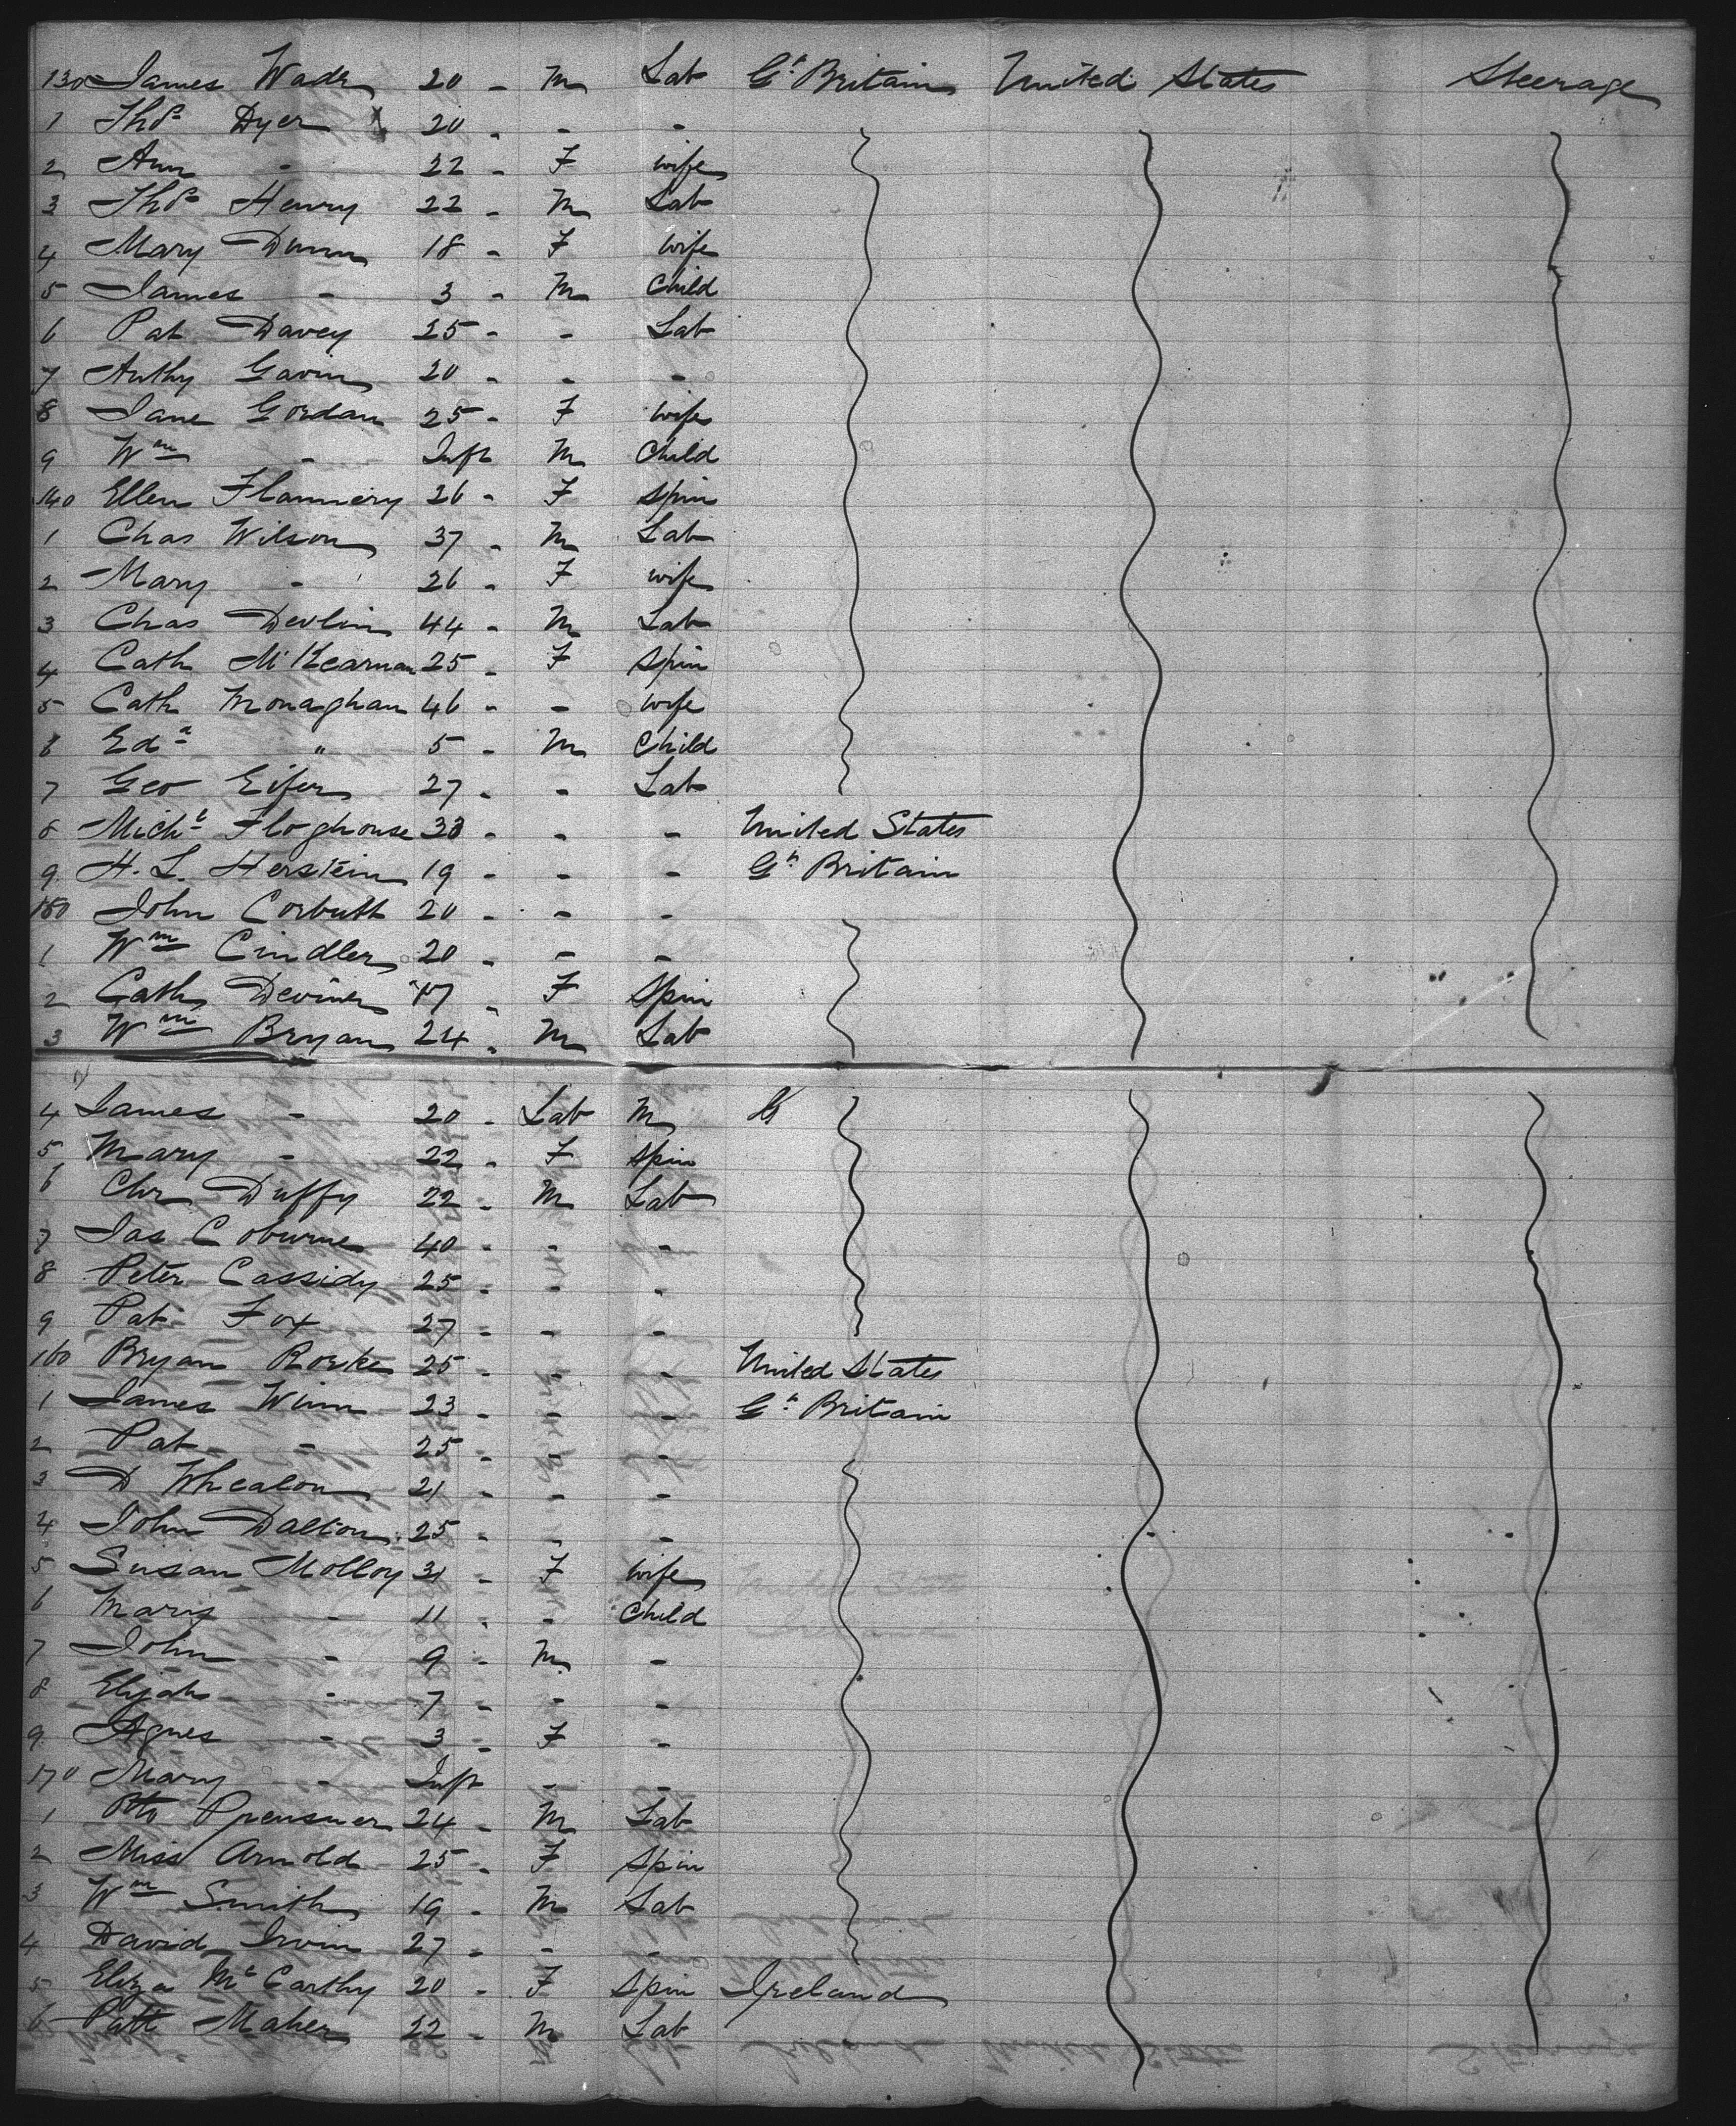 130 James Wade 20 - M Lab Gt Britain United States Steerage
1 Thos Dyer 20 - - -
2 Ann - 22 - F wife
3 Thos Henry 22 - M Lab
4 Mary Dunn 18 - F wife
5 James - 3 - M Child
6 Pat Davey 25 - - Lab
7 Anthy Gavin 20 - - -
8 Jane Gordan 25 - F wife
9 Wm - Inft M Child
140 Ellen Flannery 26 - F Spin
1 Chas Wilson 37 - M Lab
2 Mary - 26 - F wife
3 Chas Devlin 44 - M Lab
4 Cath McKearnan 25 - F Spin
5 Cath Monaghan 46 - - wife
6 Edd " 5 - M Child
7 Geo Eifer 27 - - Lab
8 Michl Floghouse - - - United States
9 H. L. Herstein 19 - - - Gt Britain
150 John Corbutt 20 - - -
1 Wm Cindler 20 - - -
2 Cath Deviner - F Spin
3 Wm Bryan 24 - M Lab
4 James - 20 - Lab M
5 Mary - 22 - F Spin
6 Chr Duffy 22 - M Lab
7 Jas Coburne 40 - - -
8 Peter Cassidy 25 - - -
9 Pat Fox 27 - - -
160 Bryan Rorke 25 - - - United States
1 James Winn 23 - - - Gt Britain
2 Pat - 25 - - -
3 D Whealon 21 - - -
4 John Dalton 25 - - -
5 Susan Molloy 31 - F wife
6 Mary - 11 - - Child
7 John - 9 - M -
8 Elijah - 7 - - -
9 Agnes - 3 - F -
170 Mary - Inft - -
1 24 - M Lab
2 Miss Arnold 25 - F Spin
3 Wm Smith 19 - M Lab
4 David Irvin 27 - - -
5 Eliza McCarthy 20 - F Spin Ireland
6 Patt Maher 22 - M Lab